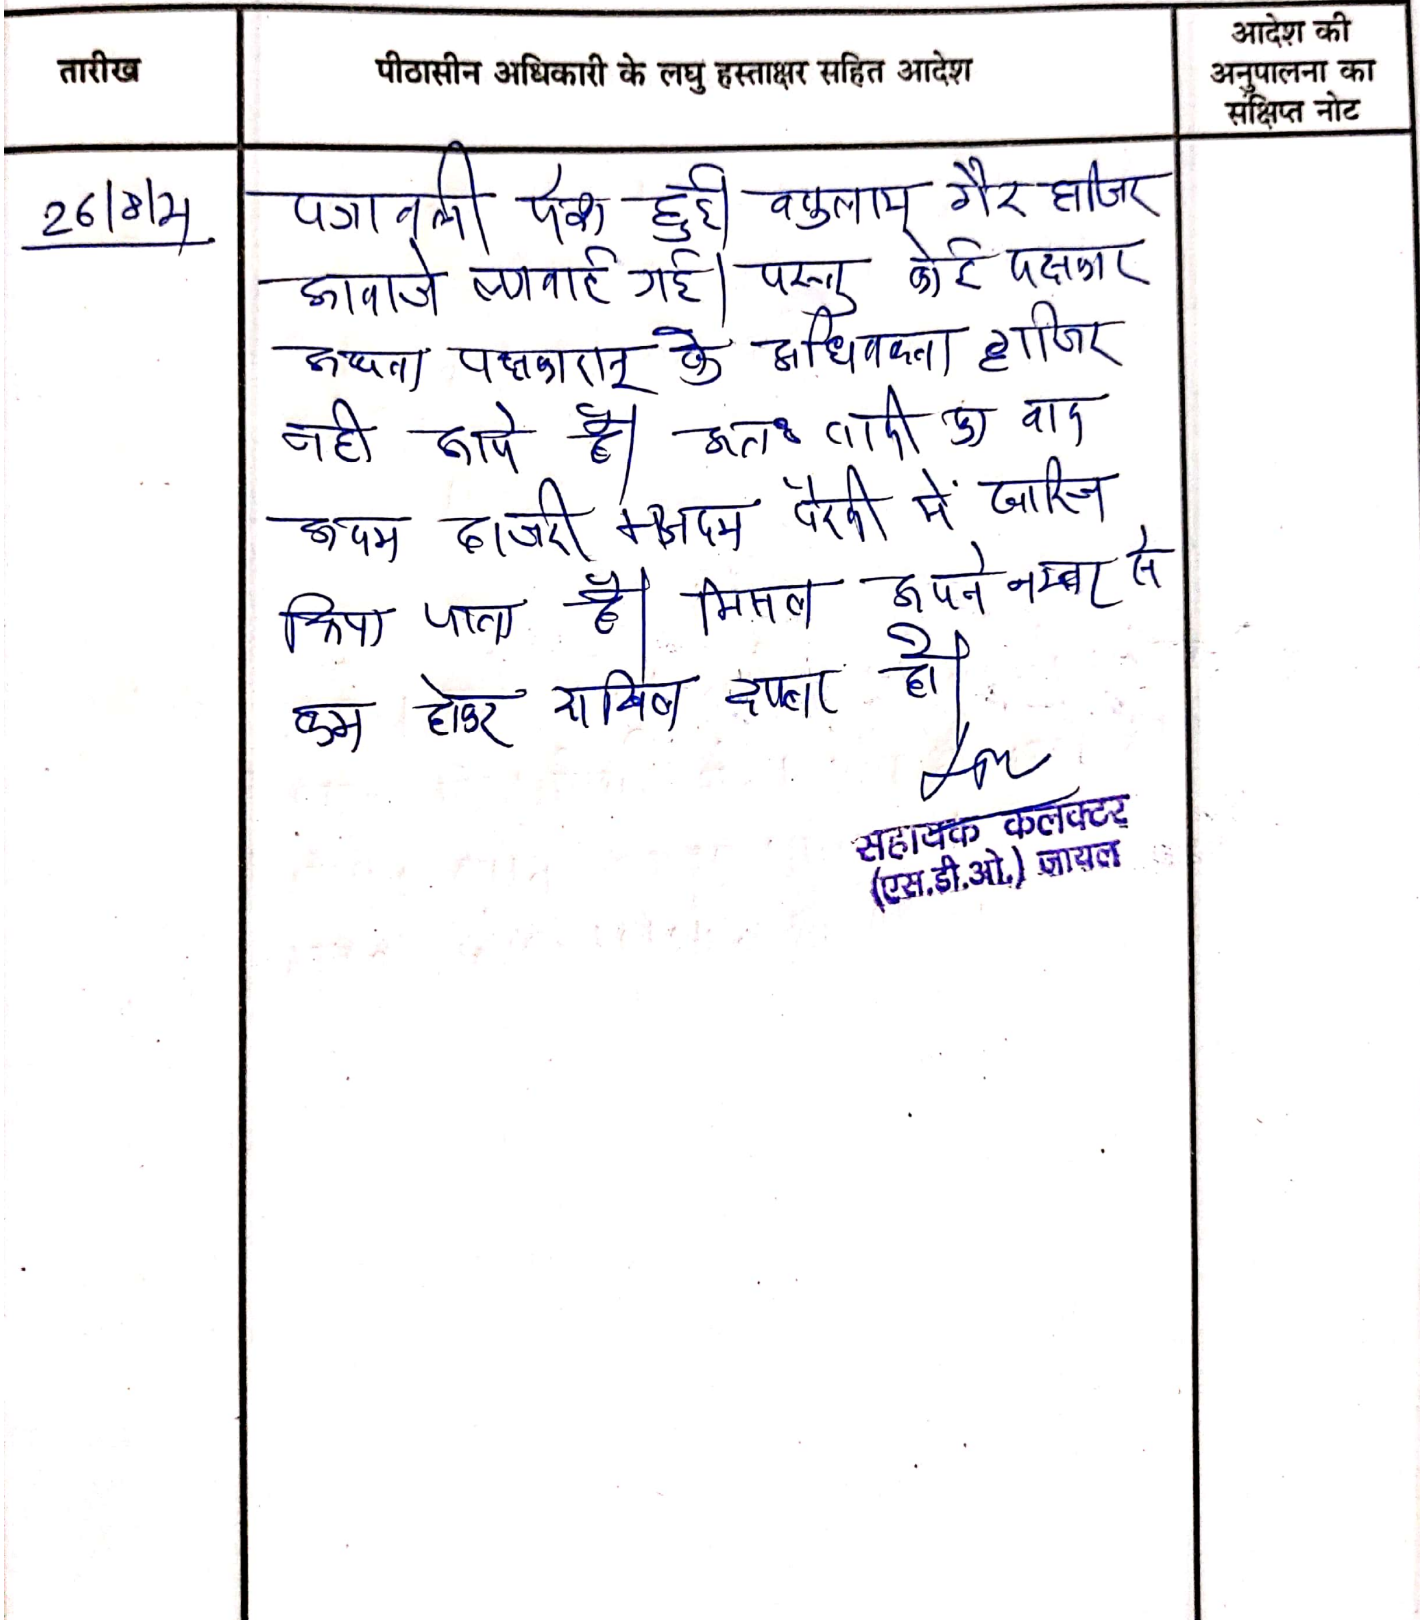 तारीख
पीठासीन अधिकारी के लघु हस्ताक्षर सहित आदेश
आदेश की
अनुपालना का
संक्षिप्त नोट
पत्रावली पेश हुई। वकुलाय गैर हाजिर
आवाजे लगवाई गई। परन्तु कोई पक्षकार
अथवा पक्षकारान् के अधिवक्ता हाजिर
नही आये है। अतः वादी का वाद
अदम हाजरी अदम पैरवी में खारिज
किया जाता है। मिसल अपने नम्बर से
कम होकर दाखिल दफ्तर हो।
सहायक कलक्टर
(एस.डी.ओ.) जायल